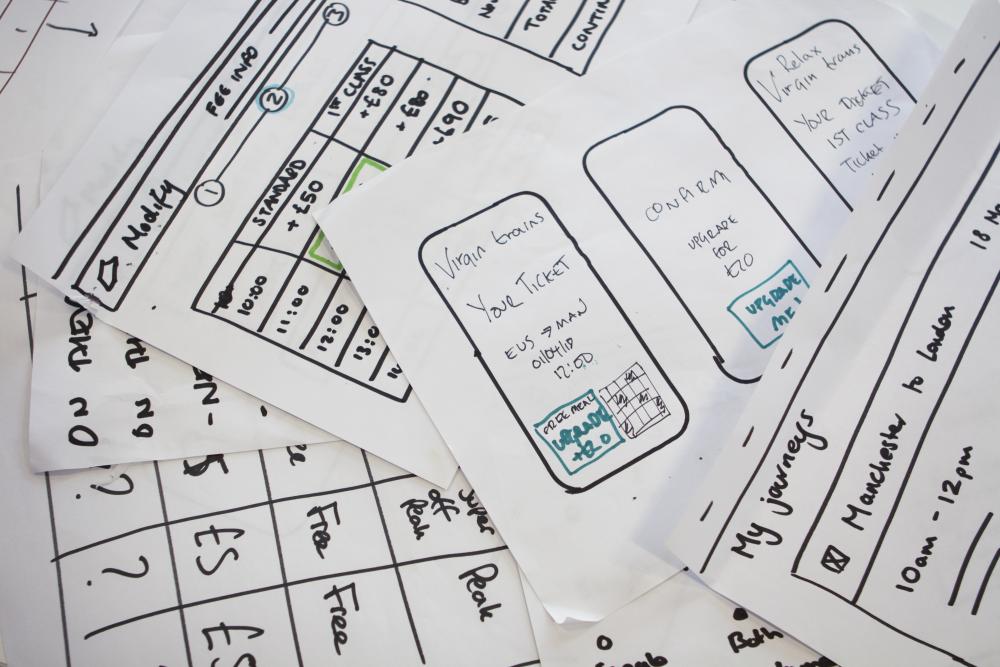 ③
②
①
FEE INFO
Modify
STANDARD
1ST CLASS
+£50
+£80
+£80
10:00
11:00
12:00
13:00
TOTAL
Virgin trains
YOUR TICKET
EUS → MAN
01/04/18
12:00
UPGRADE
+£20
CONFIRM
UPGRADE
FOR
£20
UPGRADE
ME!
Relax
Virgin trains
YOUR
1ST CLASS
Ticket
My journeys
Manchester to London
10am - 12pm
18
NO
NO
?
?
£5
£5
Free
Free
Super
off
Peak
Peak
Both